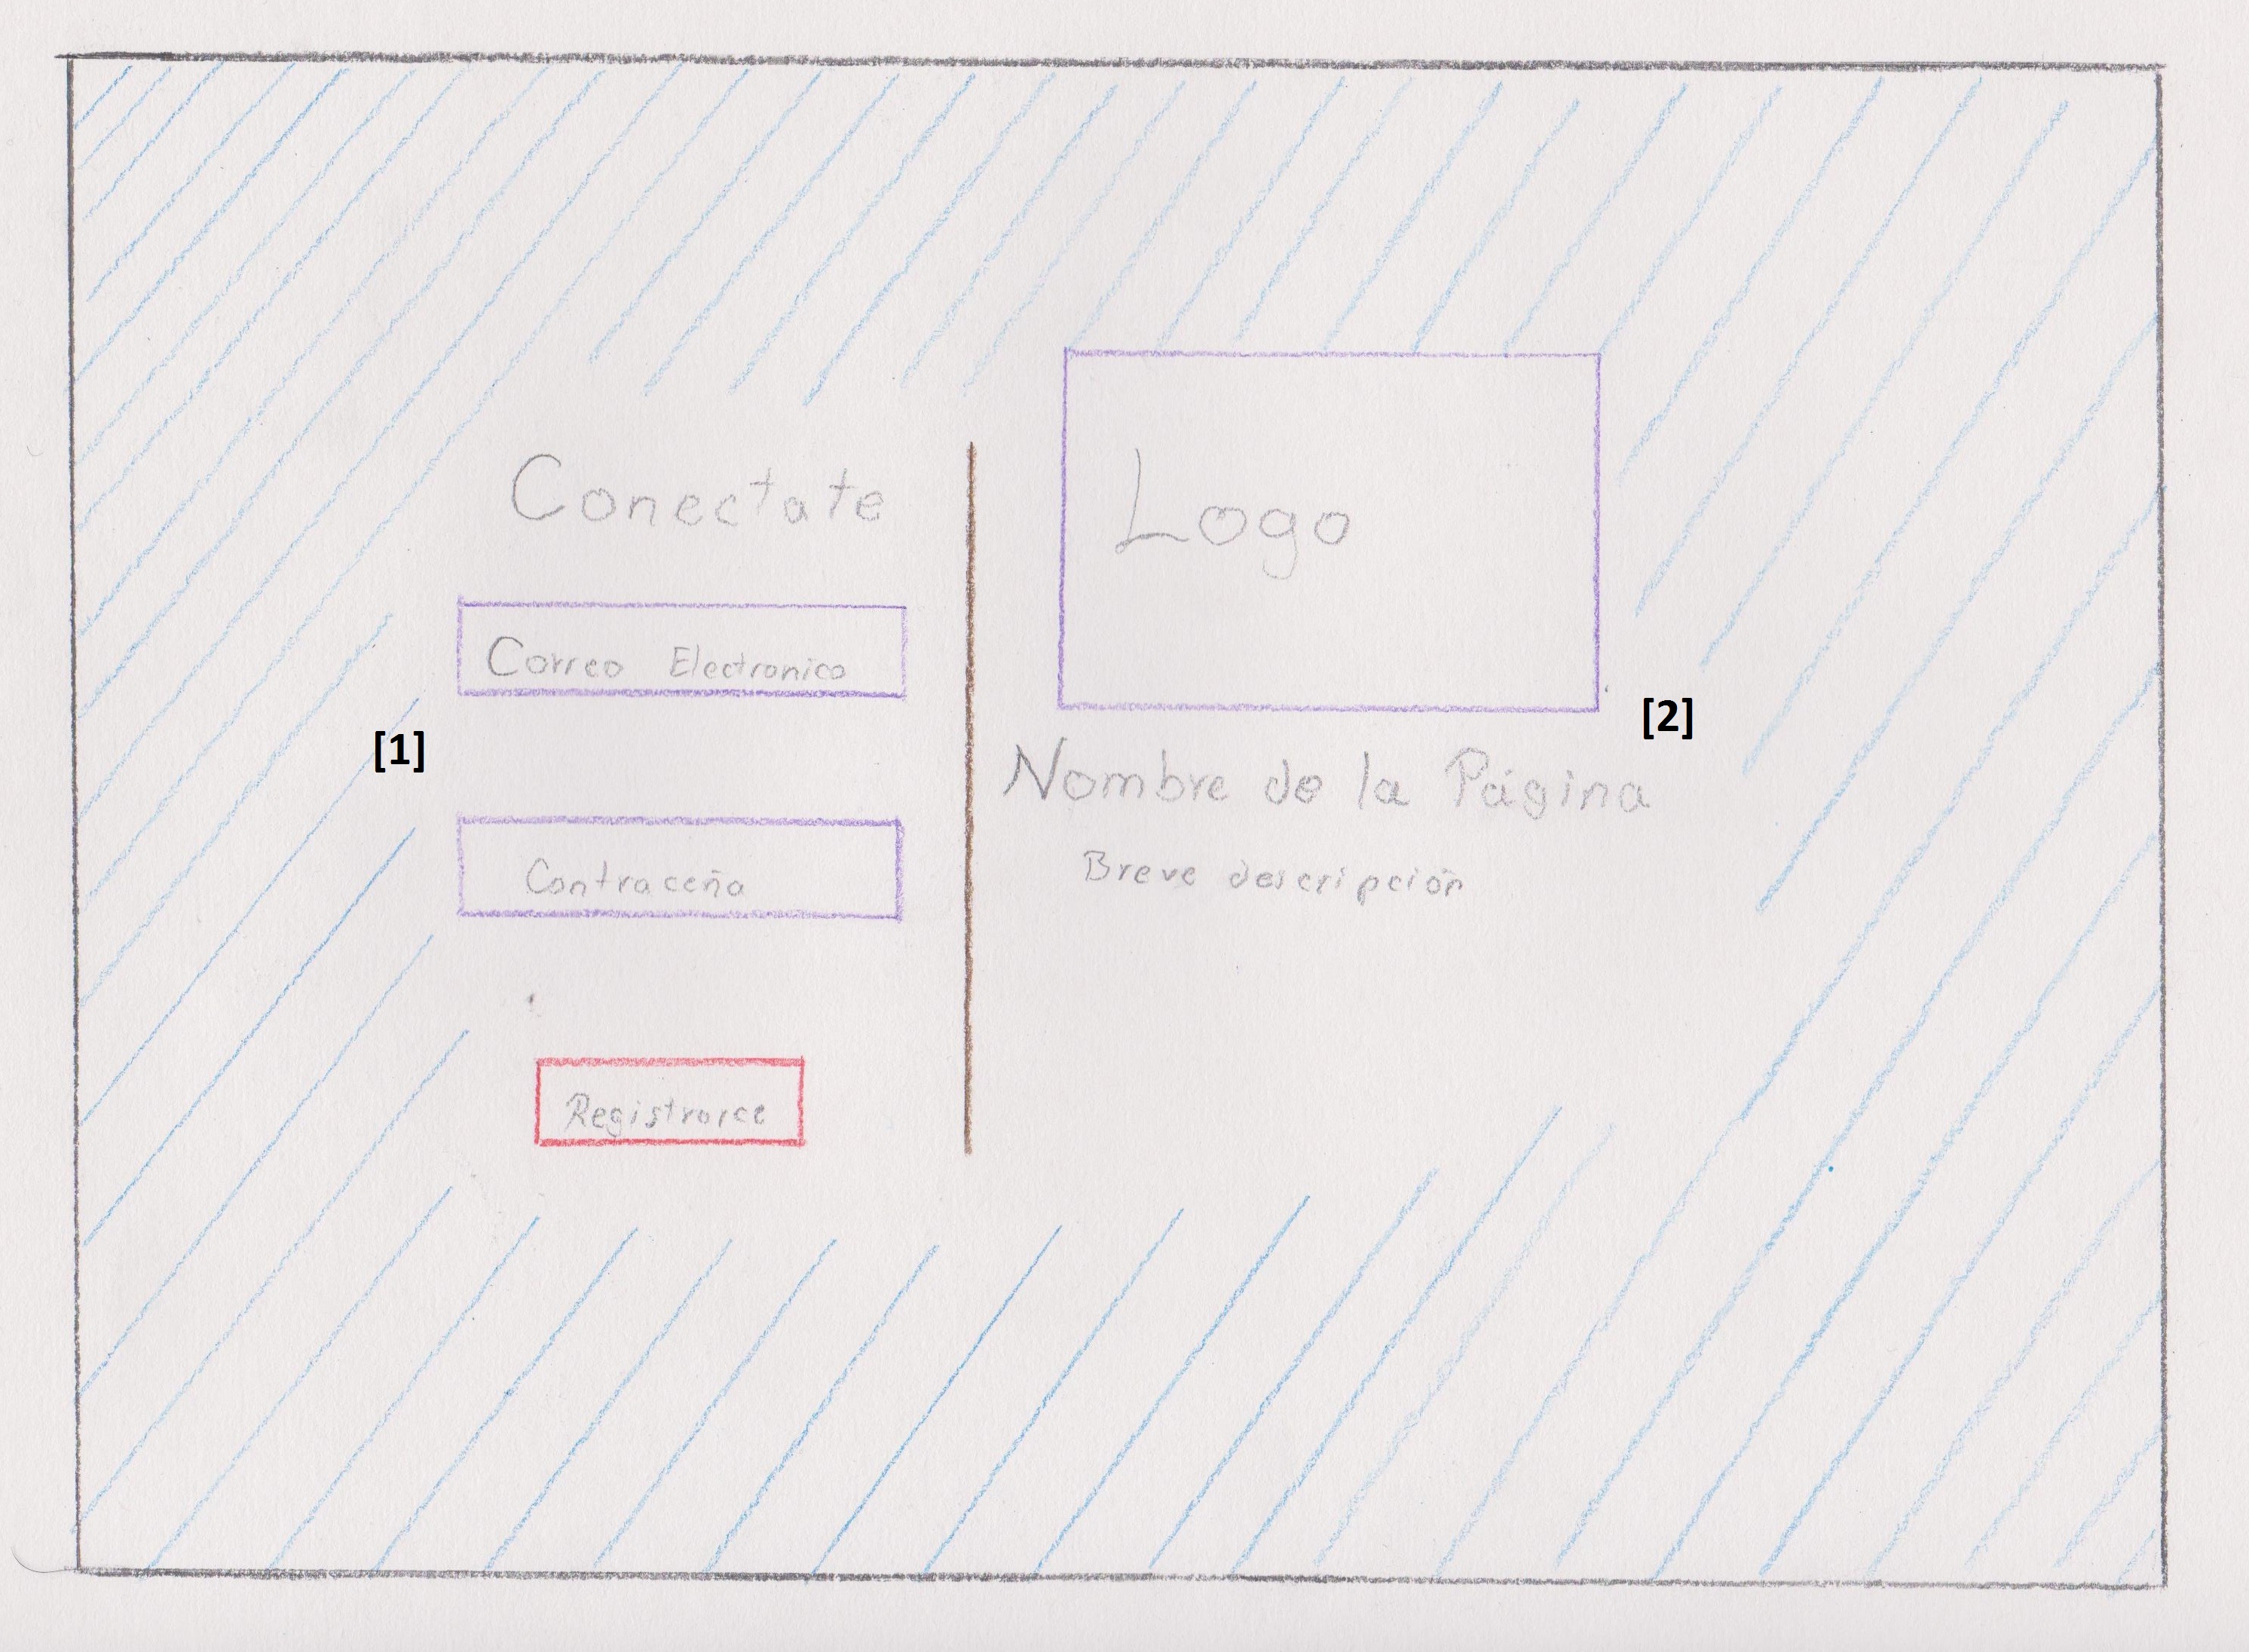 Conectate
Correo Electronico
[1]
Contraceña
Registrarce
Logo
[2]
Nombre de la Página
Breve descripción